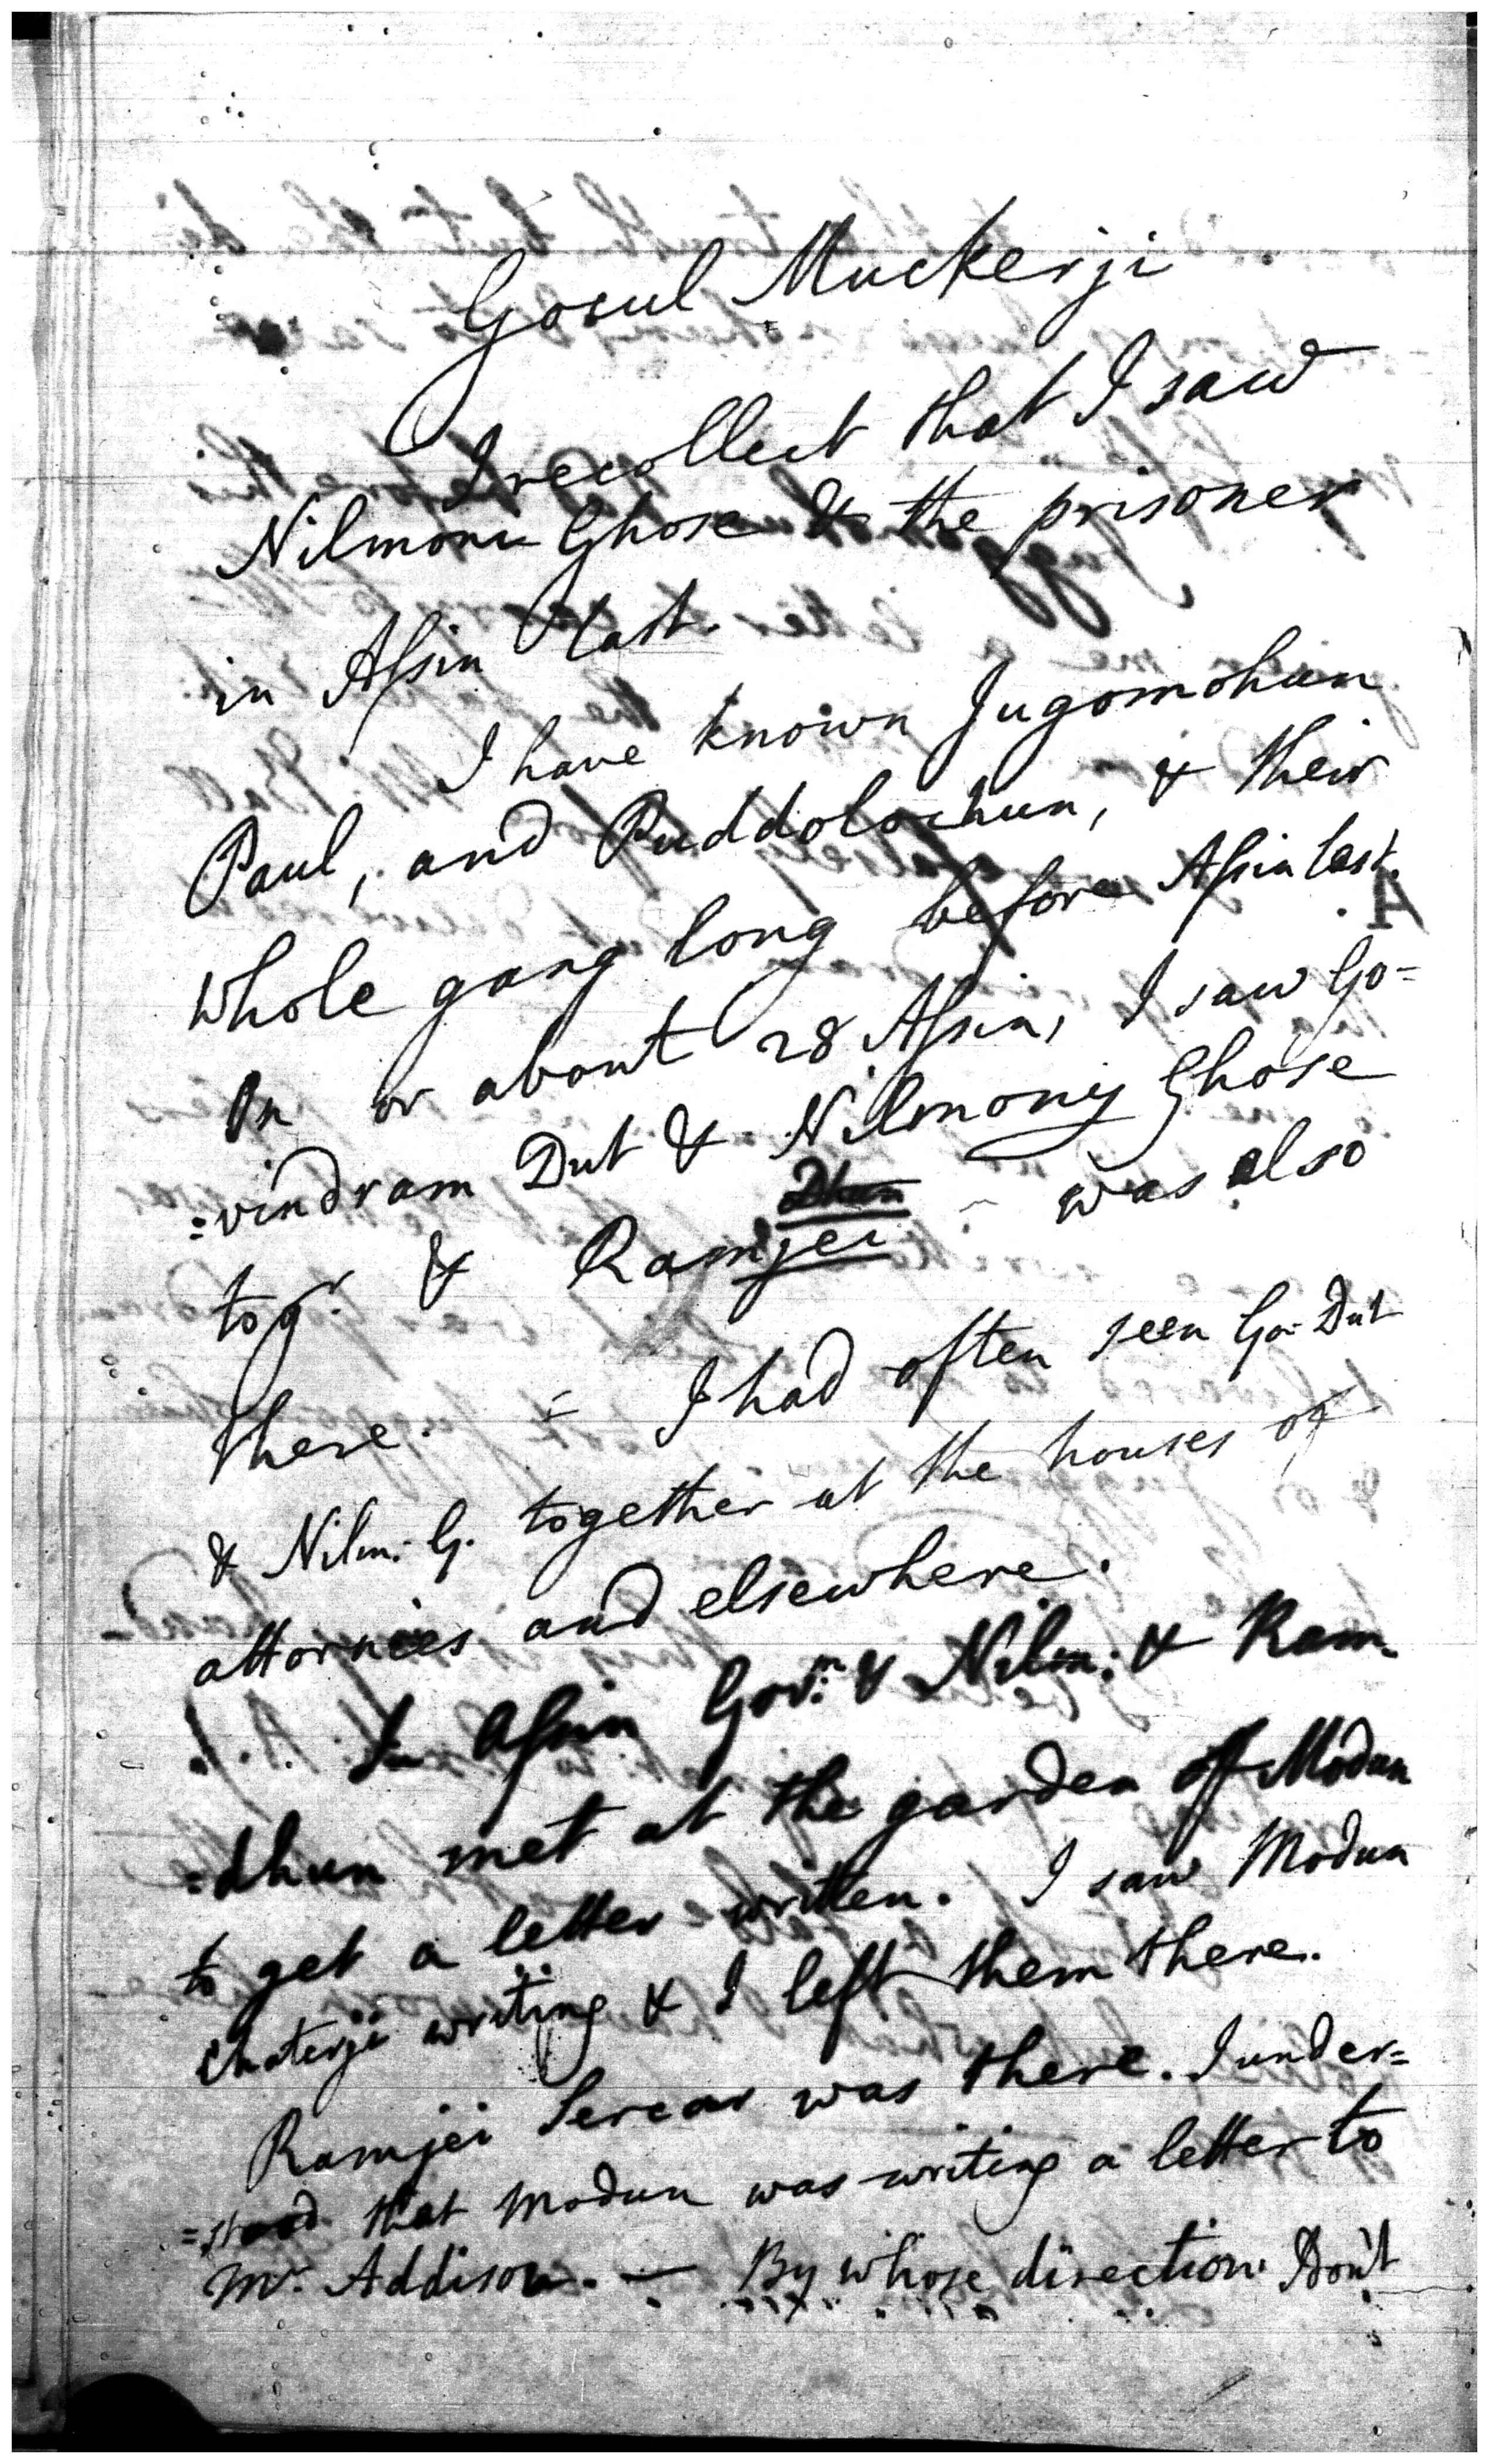 Gocul Muckerji
I recollect that I saw
Nilmoni Ghose & the prisoner
in Assin last.
I have known Jugomohun
Paul, and Puddolochun, & their
whole gang long before Assin last.
On or about 28 Assin, I saw Go=
=vindram Dut & Nilmony Ghose
togr. & Ramjei was also
there. = I had often seen Go: Dut
& Nilm: G. together at the houses of
attornies and elsewhere.
In Assin Govn: & Nilm: & Ram-
=dhun met at the garden of Modun
to get a letter written. I saw Modun
Chaterji writing & I left them there.
Ramjei Sercar was there. I under=
=stood that Modun was writing a letter to
Mr. Addison. — By whose direction I don't